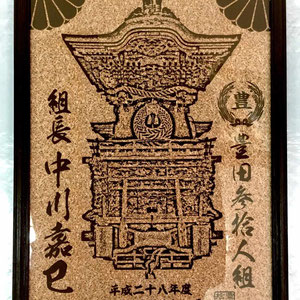 豊
豊田参拾人組
山
組長中川嘉巳
平成二十八年度